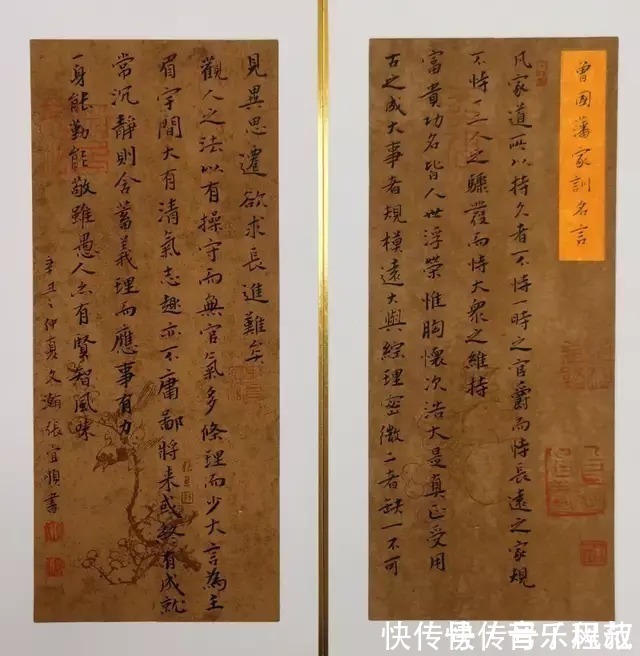 曾國藩家訓名言
凡家道所以持久者不恃一時之官爵而恃長遠之家規
不恃一二人之驟發而恃大衆之維持
富貴功名皆人世浮榮惟胸懷次浩大是真正受用
古之成大事者規模遠大與綜理密微二者缺一不可
見異思遷欲求長進難矣
觀人之法以有操守而無官氣多條理而少大言為主
眉宇間大有清氣志趣亦不庸鄙將来或終有成就
常沉靜則含蓄義理而應事有力
一身能勤能敬雖愚人亦有賢智風味
辛丑仲夏文瀚張宜順書
快传号